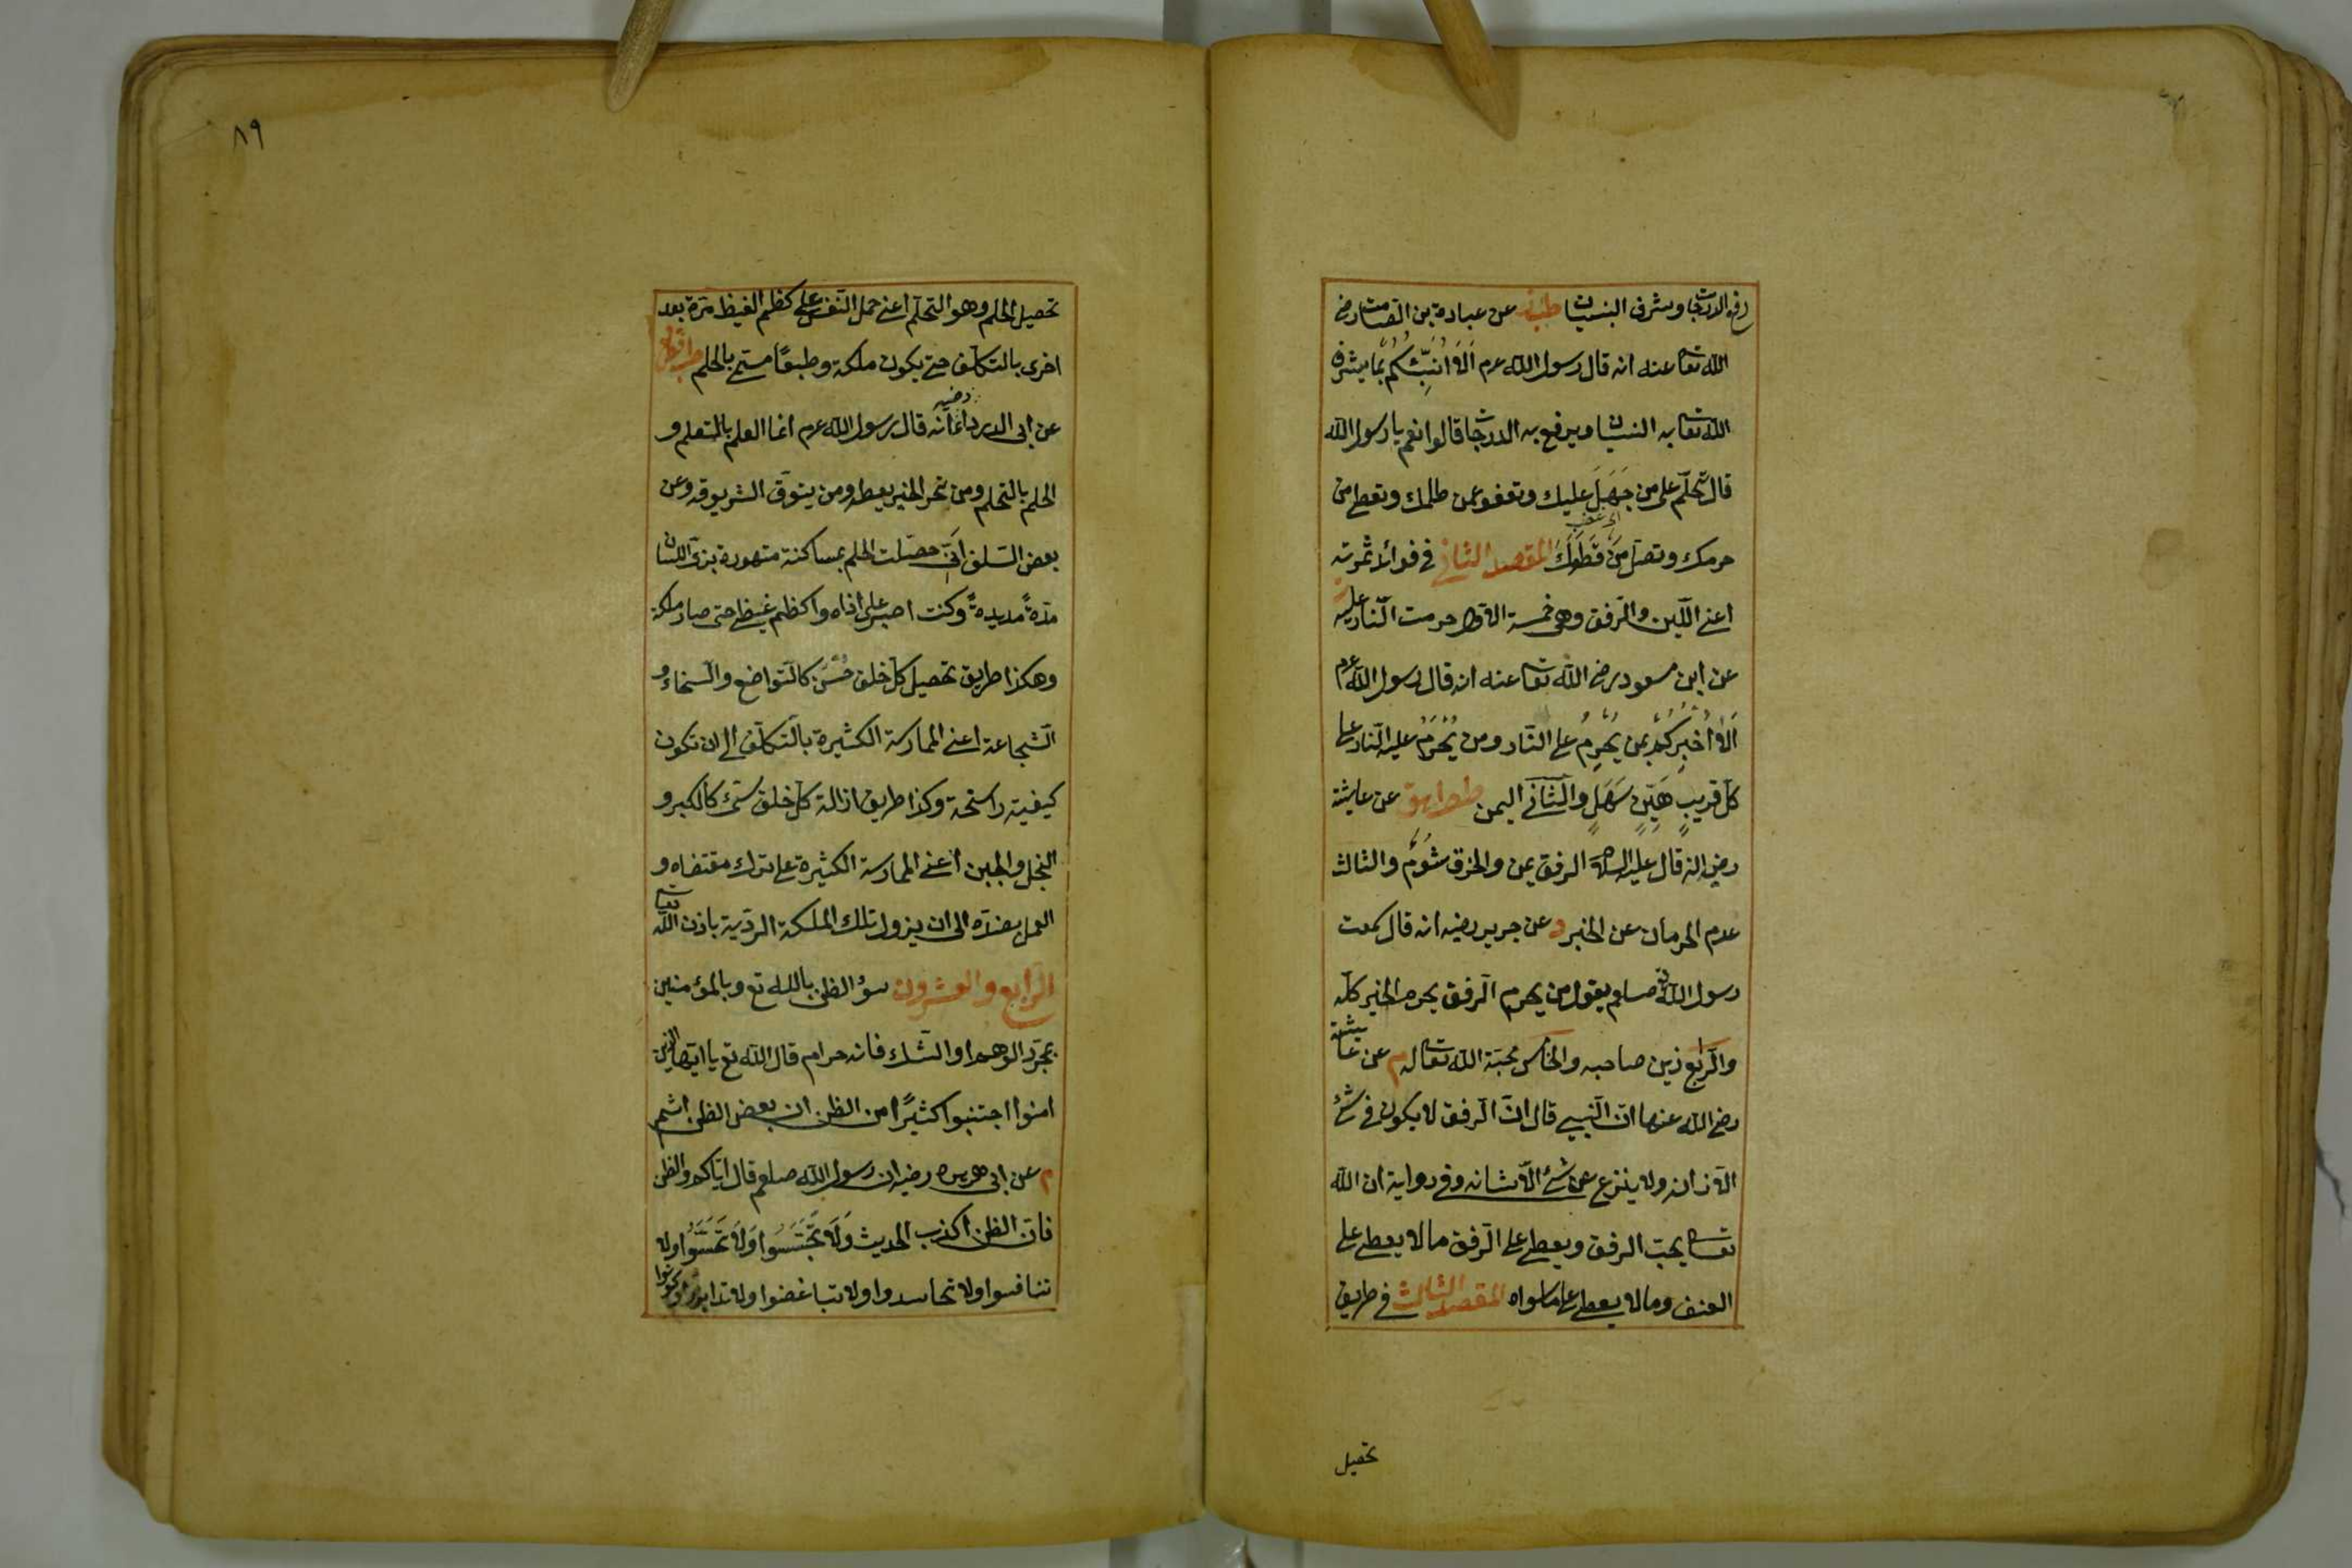 رفع الدرجات وشرف البنيات طب عن عبادة بن الصامت رض
الله تعا عنه انه قال رسول الله عرم اَلَا اُنَبِّئُكُم بما يشرف
الله تعا به البنيان ويرفع به الدرجات قالوا نعم يا رسول الله
قال تحلّم على من جَهِلَ عليك وتعفو عمن ظلمك وتعطى من
حرمك وتصل من قَطَعَكَ المقصد الثانى فى فوائد ثمرته
اعنى اللّين والرّفق وهى خمسة الاول حرمت النّار عليه
عن ابن مسعود رضى الله تعا عنه انه قال رسول الله عرم
اَلَا اُخْبِرُكُم بمن يُحْرِمُ على النّار ومن يُحْرَمُ عليه النّار على
كلّ قريبٍ هَيِّنٍ سَهْلٍ والثّانى اليمن طط هق عن عايشة
رضى انه قال عليه الصلوة الرفق يمن والخرق شُؤمٌ والثالث
عدم الحرمان عن الخير د عن جرير رضيه انه قال سمعت
رسول الله صلعم يقول من يحرم الرّفق يحرم الخير كلّه
والرّابع زين صاحبه والخامس محبّة الله تعا له م عن عايشة
رضى الله عنها انّ النّبيى قال انّ الرّفق لا يكون فى شئ
الّا زانه ولا ينزع عن شئ الّا شانه وفى رواية ان الله
تعا يحبّ الرفق ويعطى على الرّفق ما لا يعطى على
العنف وما لا يعطى على ما سواه المقصد الثالث فى طريق
تحصيل
٨٩
تحصيل الحلم وهو التحلّم اعنى حمل النّفس على كظم الغيظ مرّة بعد
اخرى بالتكلّف حتى يكون ملكة وطبعًا مستى بالحلم طب قط
عن ابى الدرداء رضيه انّه قال رسول الله عرم انما العلم بالتعلم و
الحلم بالتحلم ومن تحر الخير يعطه ومن يتوق الشر يوقه وعن
بعض السّلف اَنّى حصّلت الحلم بمساكنة متهورة بزىّ اللسان
مدّةً مديدةً وكنت اصبر على اذاه واكظم غيظى حتى صار ملكة
وهكذا طريق تحصيل كلّ خلق حَسَنٍ كالتّواضع والسّخاء و
الشّجاعة اعنى الممارسة الكثيرة بالتّكلّف الى ان تكون
كيفية راسخة وكذا طريق ازالة كلّ خلق سئ كالكبر و
البخل والجبن اعنى الممارسة الكثيرة على ترك مقتضاه و
العمل بضدّه الى ان يزول تلك الملكة الرديّة باذن الله تعا
الرّابع والعشرون سوء الظن بالله تع وبالمؤمنين
بمجرّد الوهم او الشّك فانه حرام قال الله تع يا ايّها الذين
امنوا اجتنبوا كثيرًا من الظن ان بعض الظن اثم
م عن ابى هريره رضيه ان رسول الله صلعم قال ايّاكم والظن
فانّ الظن اكذب الحديث وَلَا تَجَسَّسُوا وَلَا تَحَسَّسُوا ولا
تنافسوا ولا تحاسدوا ولا تباغضوا ولا تدابروا وكونوا